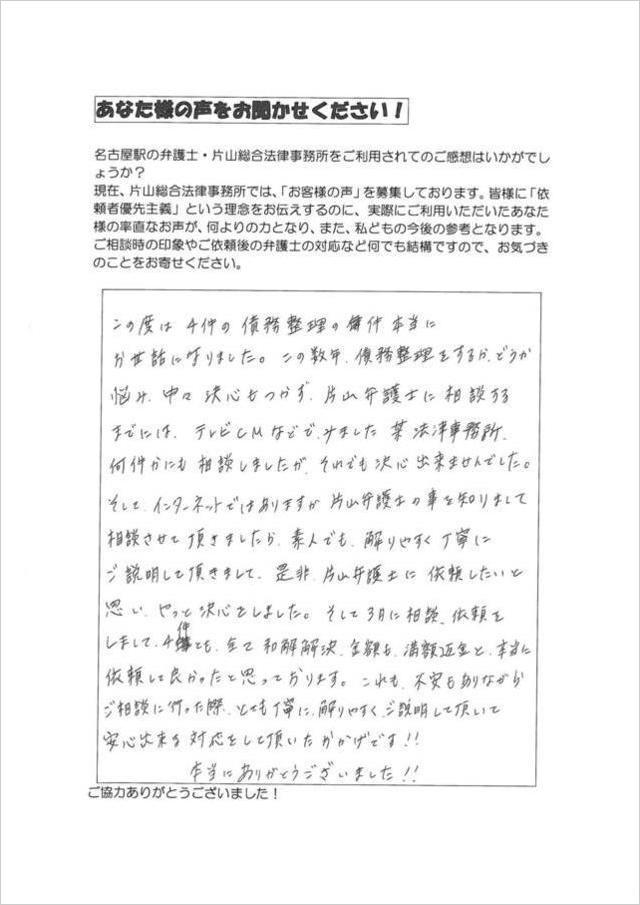 あなた様の声をお聞かせください！
名古屋駅の弁護士・片山総合法律事務所をご利用されてのご感想はいかがでし
ょうか？
現在、片山総合法律事務所では、「お客様の声」を募集しております。皆様に「依
頼者優先主義」という理念をお伝えするのに、実際にご利用いただいたあなた
様の率直なお声が、何よりの力となり、また、私どもの今後の参考となります。
ご相談時の印象やご依頼後の弁護士の対応など何でも結構ですので、お気づき
のことをお寄せください。
この度は4件の債務整理の件本当に
お世話になりました。この数年、債務整理をするか、どうか
悩み、中々決心もつかず、片山弁護士に相談する
までには、テレビCMなどで、みました某法津事務所、
何件かにも相談しましたが、それでも決心出来ませんでした。
そして、インターネットではありますが片山弁護士の事を知りまして
相談させて頂きましたら、素人でも、解りやすく丁寧に
ご説明して頂きまして、是非、片山弁護士に依頼したいと
思い、やっと決心をしました。そして3月に相談、依頼を
しまして、4件とも、全て和解解決、金額も、満額返金と、本当に
依頼して良かったと思っております。これも、不安もありながら
ご相談に行った際、とても丁寧に、解りやすく、ご説明して頂いて
安心出来る対応をして頂いたおかげです!!
本当にありがとうございました!!
ご協力ありがとうございました！